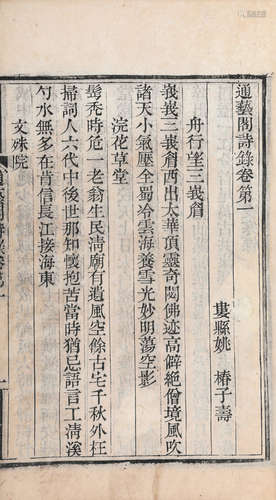 通藝閣詩錄卷第一
婁縣姚 椿子壽
舟行望三峩眉
峩峩三峩眉西出太華頂靈奇閟佛迹高僻絕僧境風吹
諸天小氣壓全蜀冷雲海養雪光妙明蕩空影
浣花草堂
髩禿時危一老翁生民淸廟有遺風空餘古宅千秋外枉
掃詞人六代中後世那知懷抱苦當時猶忌語言工淸溪
勺水無多在肯信長江接海東
文殊院